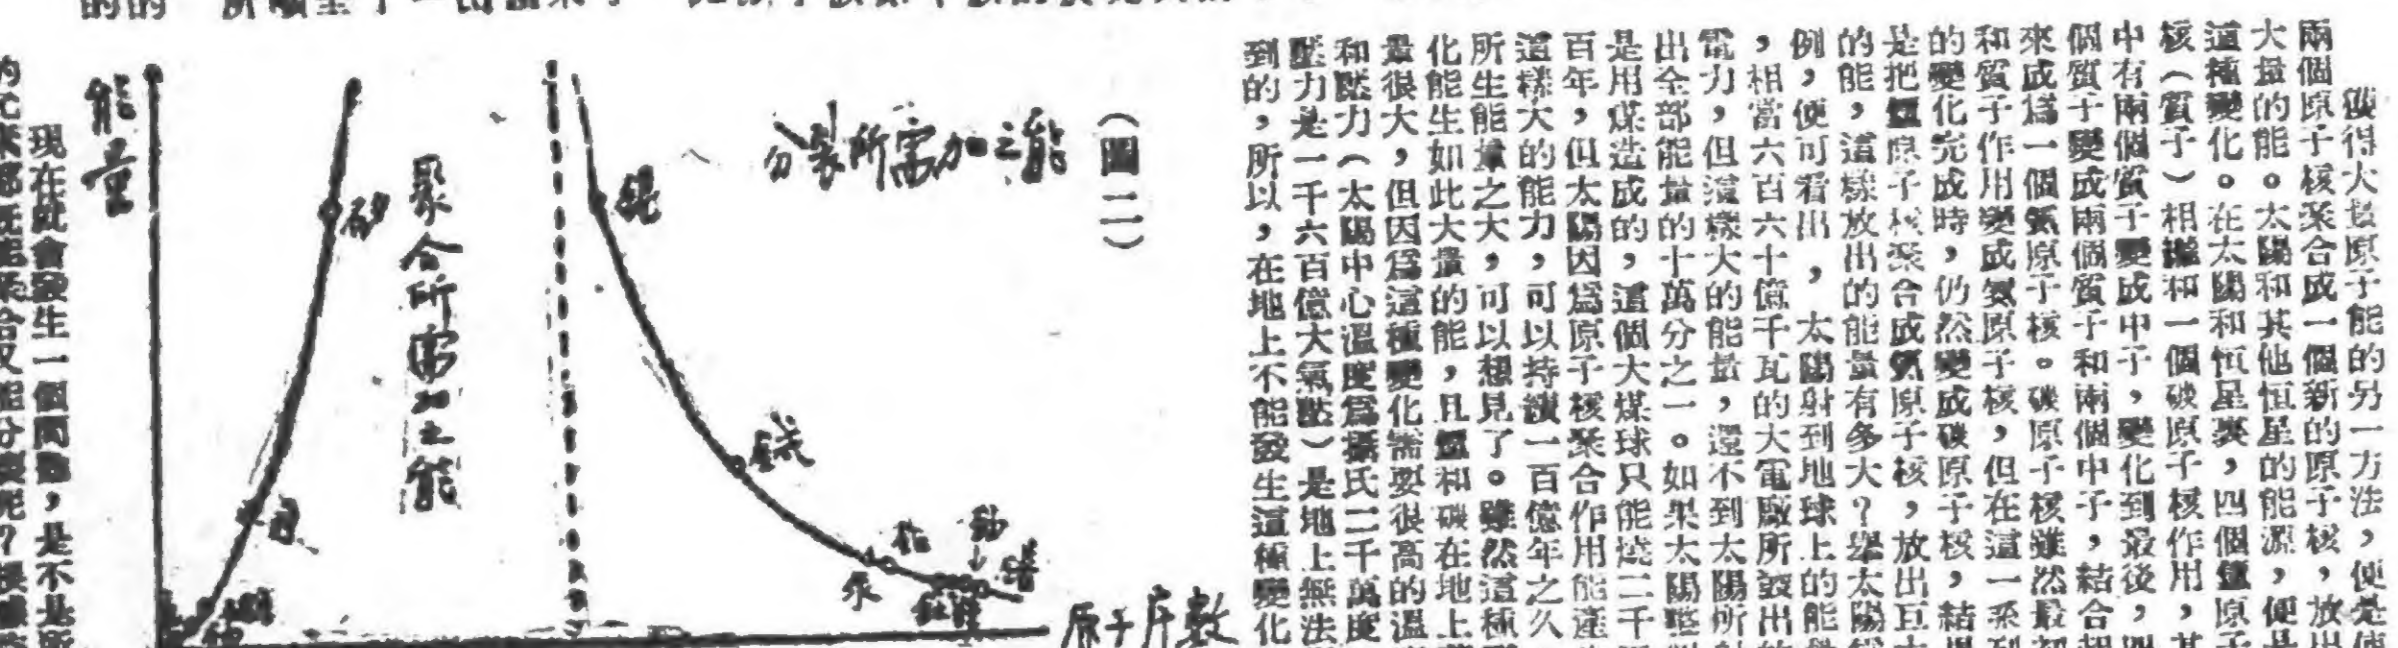 獲得大量原子能的另一方法,便是使
兩個原子核聚合成一個新的原子核,放出
大量的能。太陽和其他恒星的能源,便是
這種變化。在太陽和恒星裏,四個氫原子
核(質子)相繼和一個碳原子核作用,其
中有兩個質子變成中子,變化到最後,四
個質子變成兩個質子和兩個中子,結合起
來成爲一個氦原子核。碳原子核雖然最初
和質子作用變成氮原子核,但在這一系列
的變化完成時,仍然變成碳原子核,結果
是把氫原子核聚合成氦原子核,放出巨大
的能,這樣放出的能量有多大?舉太陽
例,便可看出,太陽射到地球上的能
,相當六百六十億千瓦的大電廠所發出的
電力,但這樣大的能量,還不到太陽所射
出全部能量的十萬分之一。如果太陽整個
是用煤造成的,這個大煤球只能燒二千
百年,但太陽因爲原子核聚合作用能產
這樣大的能力,可以持續一百億年之久
所生能量之大,可以想見了。雖然這種
化能生如此大量的能,且氫和碳在地上
量很大,但因爲這種變化需要很高的溫
和壓力(太陽中心溫度爲攝氏二千萬度
壓力是一千六百億大氣壓)是地上無法
到的,所以,在地上不能發生這種變化
(圖二)
分裂所需加之能
聚合所需加之能
能量
原子序數
矽
錫
鐵
汞
鉛
鈾
現在就會發生一個問題,是不是所
的元素都既能聚合又能分裂呢?根據